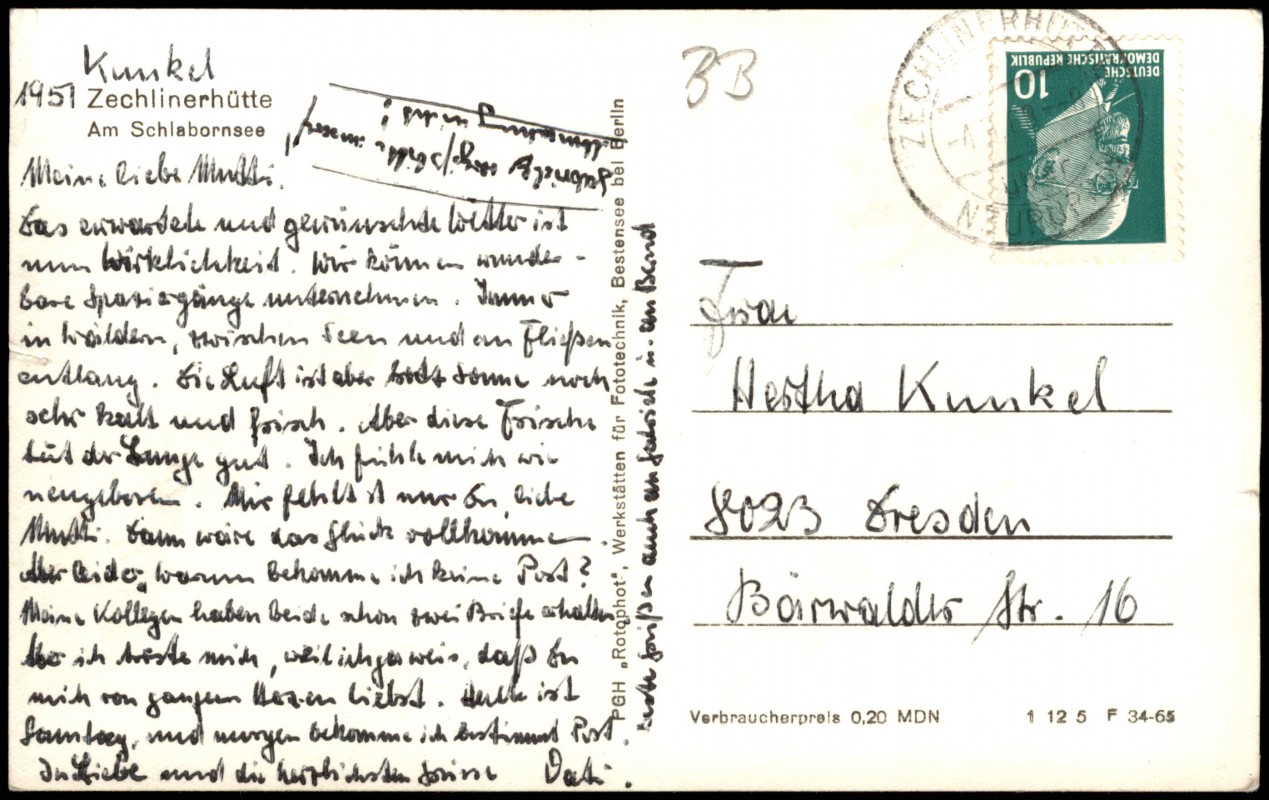 Kunkel
1951 Zechlinerhütte
Am Schlabornsee
Meine liebe Mutti.
Das erwartete und gewünschte Wetter ist
nun Wirklichkeit. Wir können wunder-
bare Spaziergänge unternehmen. Immer
in Wäldern, zwischen Seen und an Fließen
entlang. Die Luft ist aber trotz Sonne noch
sehr kalt und frisch. Aber diese Frische
tut der Lunge gut. Ich fühle mich wie
neugeboren. Mir fehlst nur Du, liebe
Mutti. Dann wäre das Glück vollkommen.
Aber leider, warum bekomme ich keine Post?
Meine Kollegen haben beide schon zwei Briefe erhalten.
Aber ich tröste mich, weil ich gewiß, daß Du
mich von ganzem Herzen liebst. Heute ist
Samstag, und morgen bekomme ich bestimmt Post.
In Liebe und die herzlichsten Grüsse Vati.
PGH „Rotophot", Werkstätten für Fototechnik, Bestensee bei Berlin
Grüßen auch an u. an Bernd
BB
ZECHLINERHÜTTE
NEURUPPIN
DEUTSCHE
DEMOKRATISCHE REPUBLIK
10
Frau
Hertha Kunkel
8023 Dresden
Bärwalder Str. 16
Verbraucherpreis 0,20 MDN 1 12 5 F 34-65